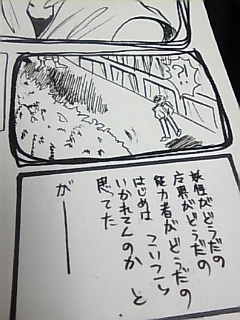 ?!
妖怪がどうだの
魔界がどうだの
能力者がどうだの
はじめは こいつら
いかれてんのか と
思てた
が――